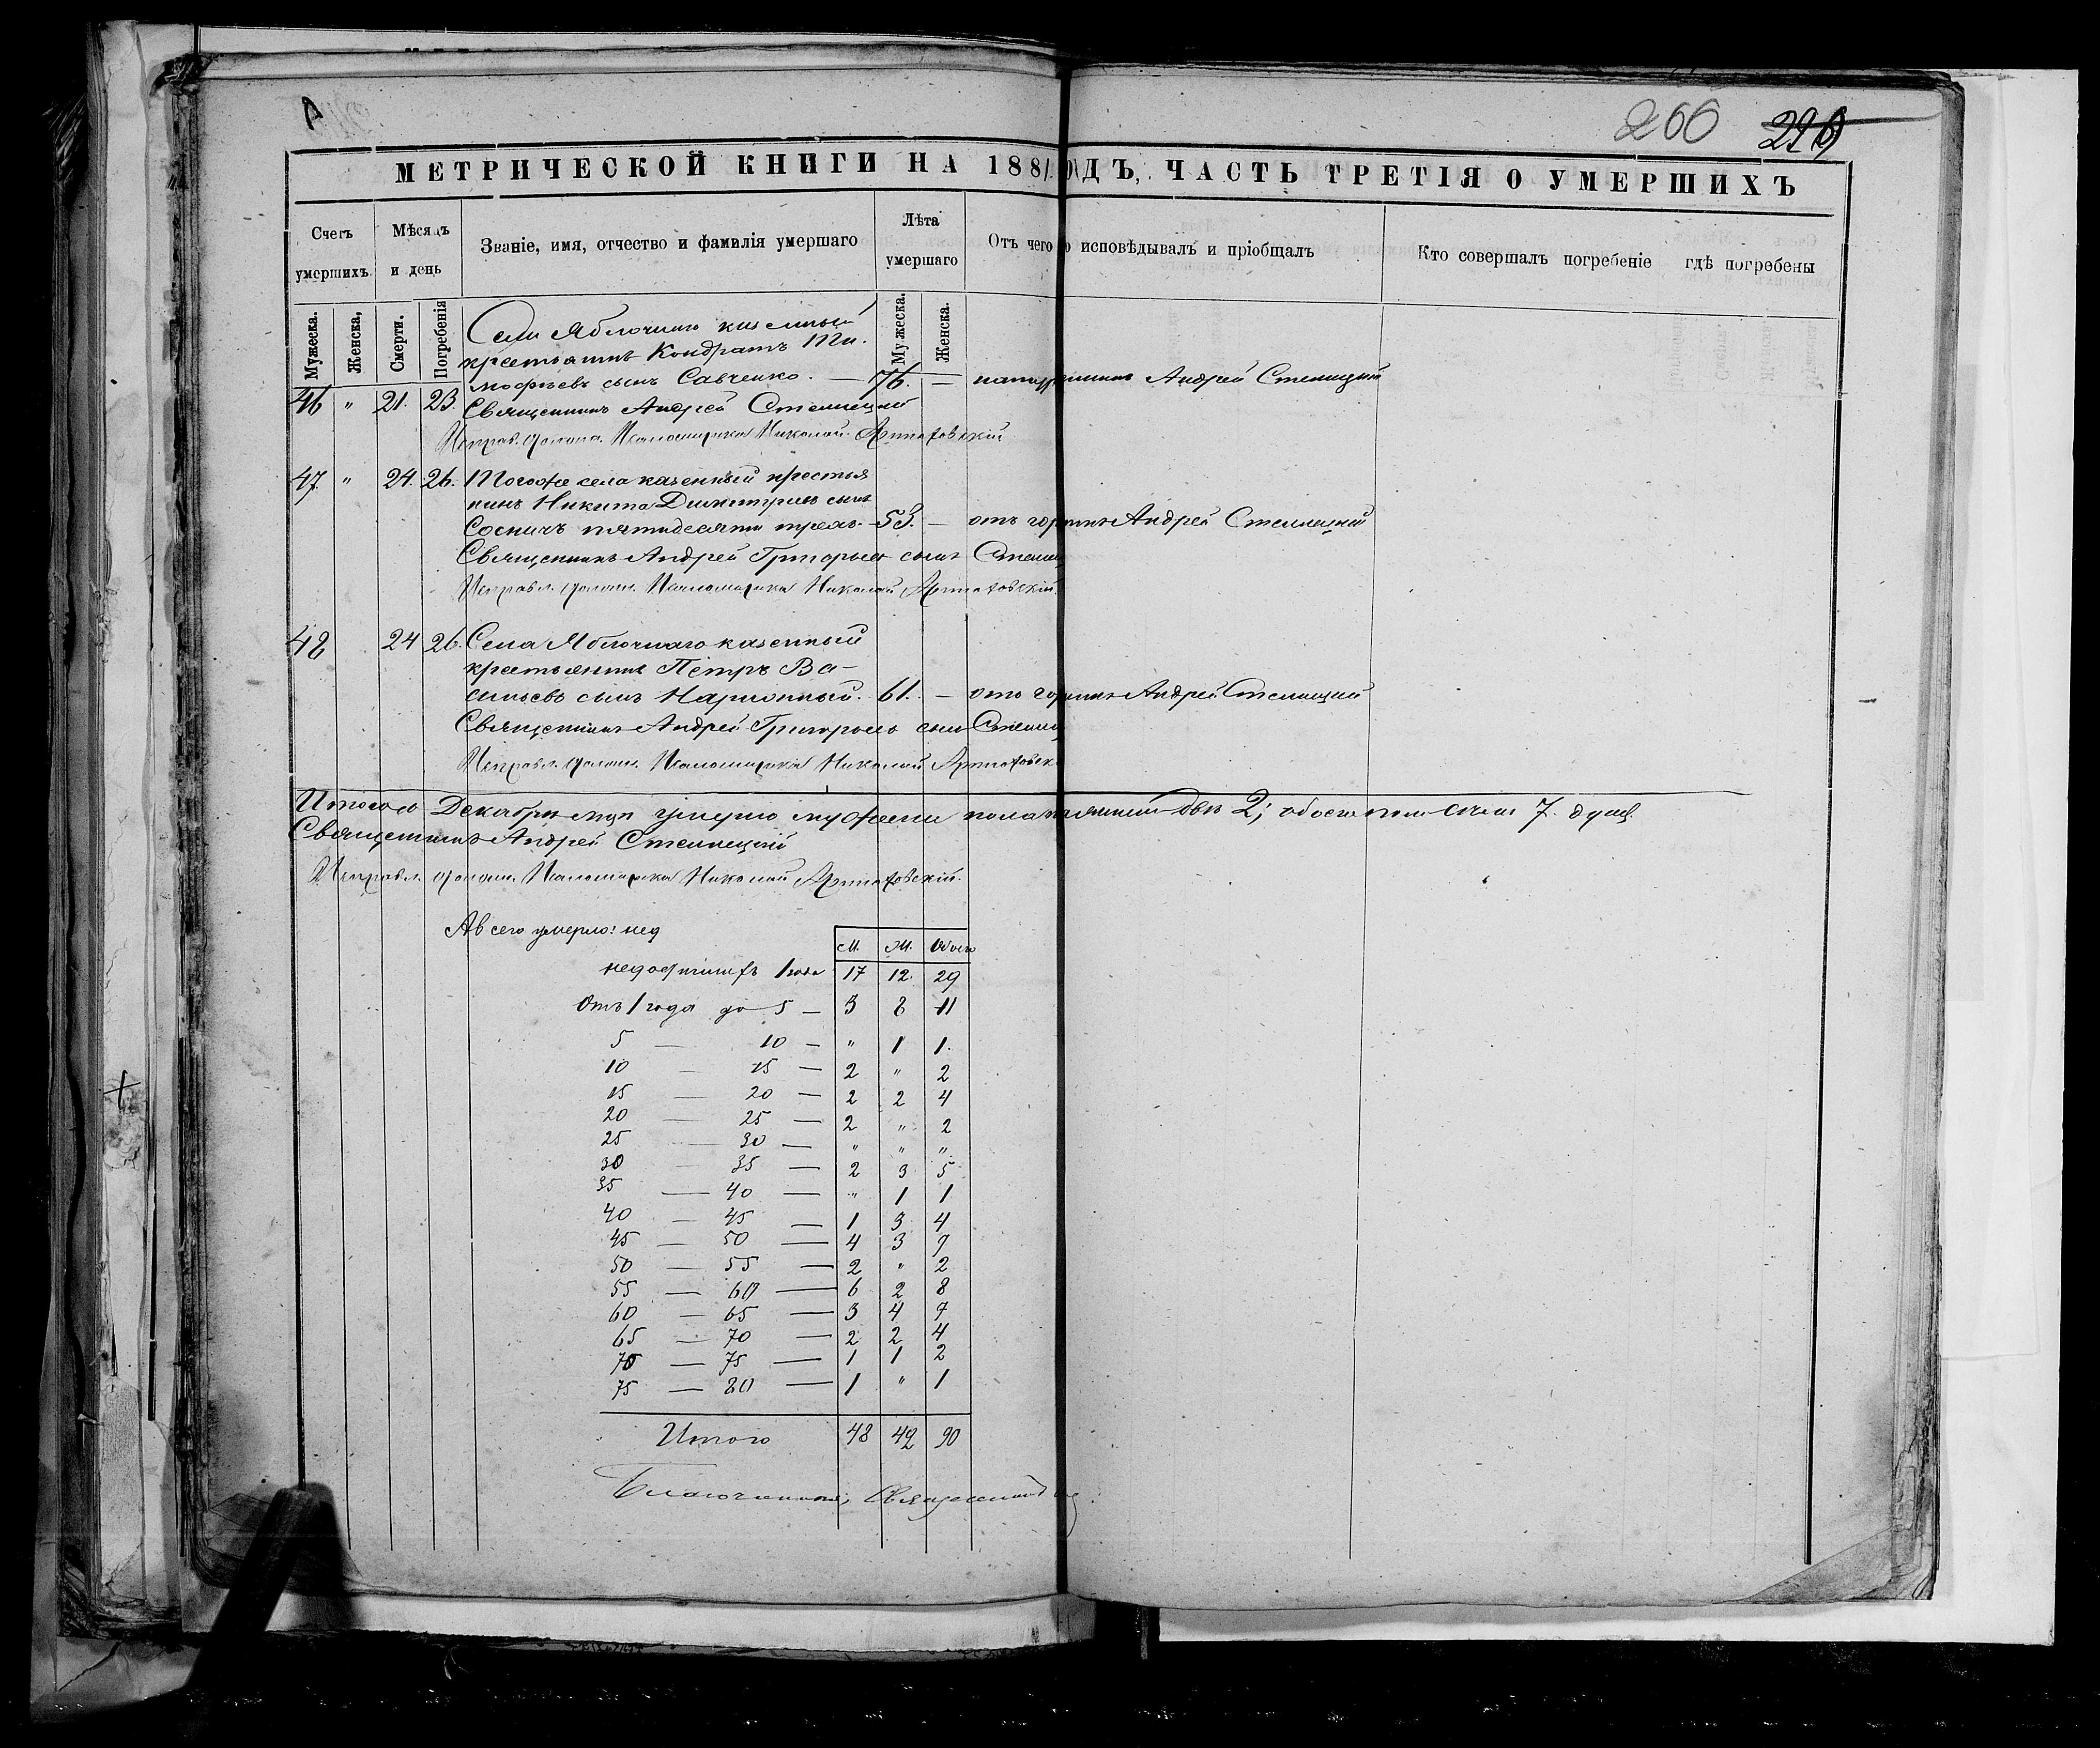 266 296
МЕТРИЧЕСКОЙ КНИГИ НА 1881 ОДЪ, ЧАСТЬ ТРЕТІЯ О УМЕРШИХЪ
Счетъ умершихъ
Мѣсяцъ и день
Званіе, имя, отчество и фамилія умершаго
Лѣта умершаго
Отъ чего
о исповѣдывалъ и пріобщалъ
Кто совершалъ погребеніе
гдѣ погребены
Мужеска. Женска, Смерти. Погребенія Мужеска. Женска.
Села Яблочнаго казенный
крестьянинъ Кондратъ Ти-
мофѣевъ сынъ Савченко. — 76. — Андрей Стеллецкій
46 " 21. 23. Священникъ Андрей Стеллецкій
Исправл. должн. Псаломщика Николай
47 " 24. 26. Тогоже села казенный крестья
нинъ Никита Димитріевъ сынъ
пятидесяти трехъ — 53. — отъ Андрей Стеллецкій
Священникъ Андрей Григорьевъ сынъ
Исправл. должн. Псаломщика Николай
48 24 26. Села Яблочнаго казенный
крестьянинъ Петръ Ва-
сильевъ сынъ 61. — отъ Андрей Стеллецкій
Священникъ Андрей Григорьевъ сынъ
Исправл. должн. Псаломщика Николай
Итого въ Декабрѣ умерло мужеска пола 2; обоего пола 7. душъ
Священникъ Андрей Стеллецкій
Исправл. должн. Псаломщика Николай
А всего умерло: нед
М. Ж. Обоего
недожившихъ 1 года 17 12. 29
Отъ 1 года до 5 — 3 8 11
5 — 10 — " 1 1.
10 — 15 — 2 " 2
15 — 20 — 2 2 4
20 — 25 — 2 " 2
25 — 30 — " " "
30 — 35 — 2 3 5
35 — 40 — " 1 1
40 — 45 — 1 3 4
45 — 50 — 4 3 7
50 — 55 — 2 " 2
55 — 60 — 6 2 8
60 — 65 — 3 4 7
65 — 70 — 2 2 4
70 — 75 — 1 1 2
75 — 80 — 1 " 1
Итого 48 42 90
Благочинный, Священникъ